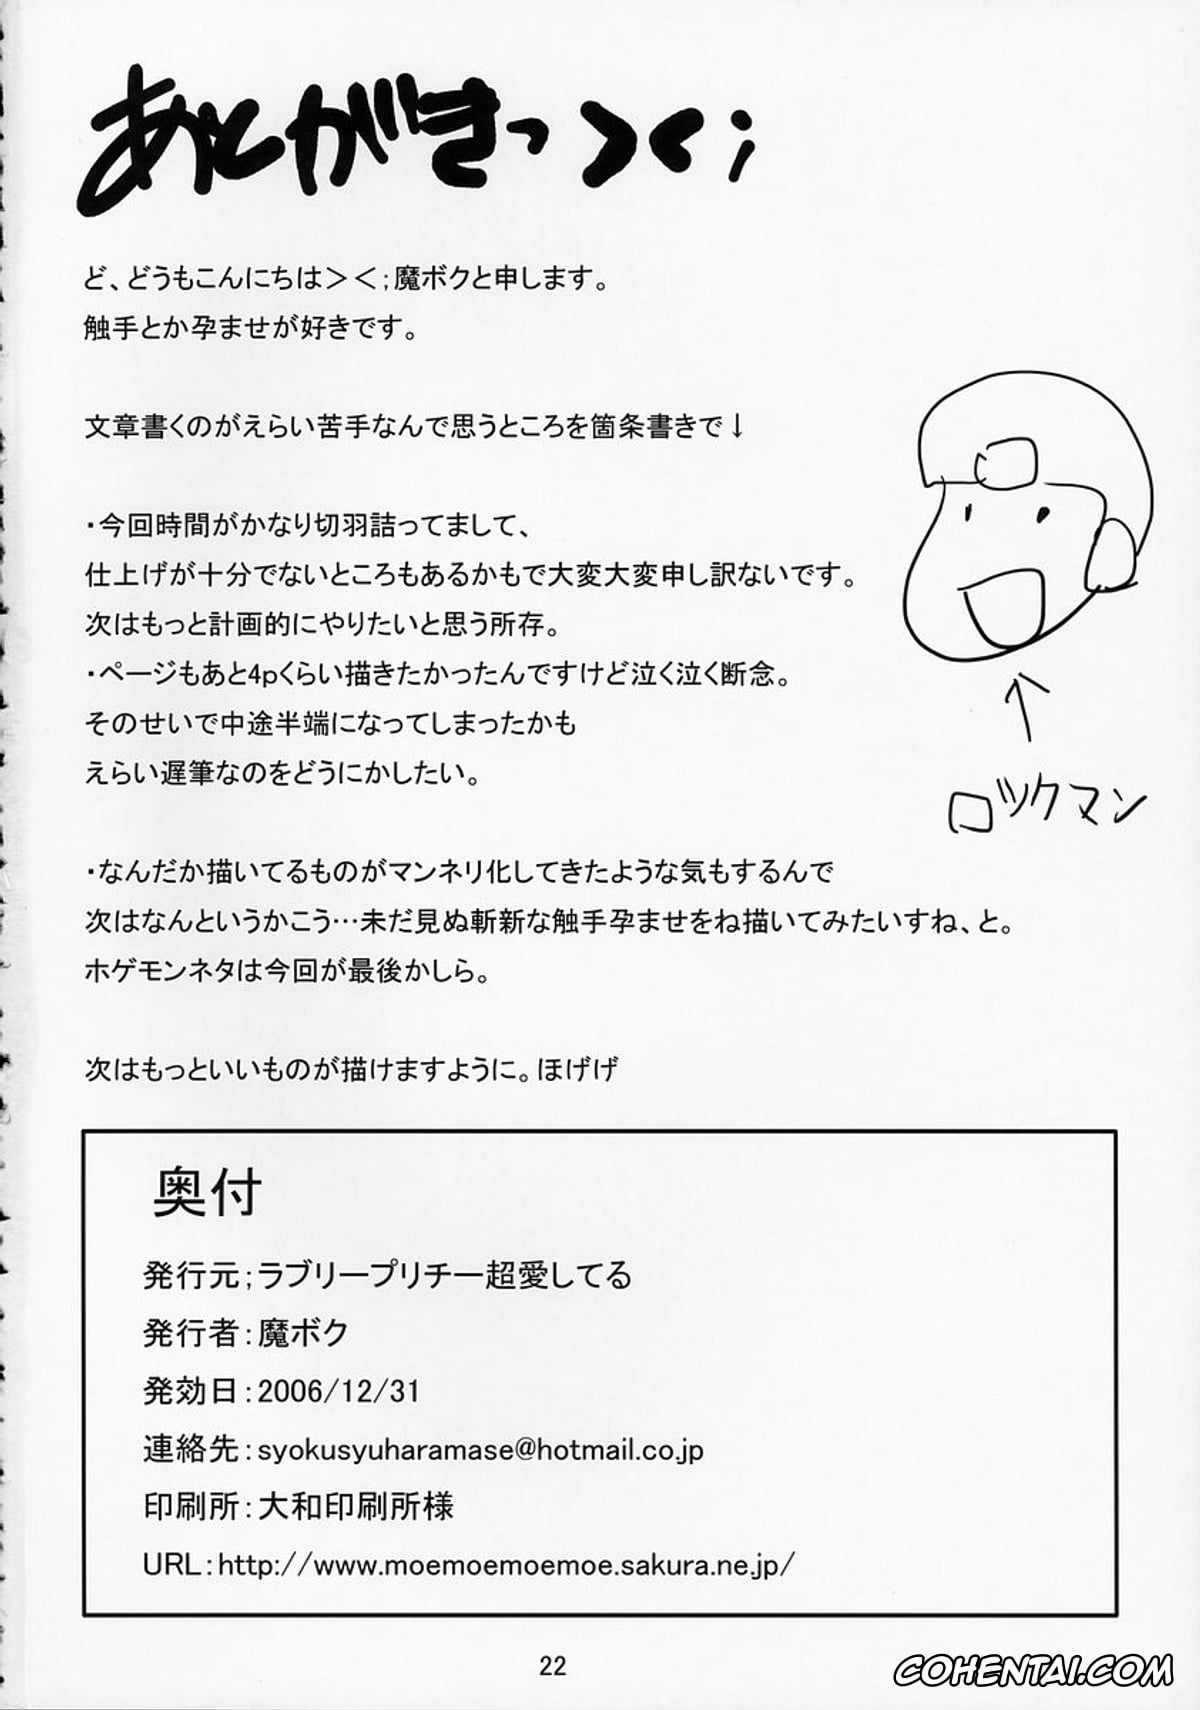 あとがきっ＞＜；
ど、どうもこんにちは＞＜；魔ボクと申します。
触手とか孕ませが好きです。
文章書くのがえらい苦手なんで思うところを箇条書きで↓
・今回時間がかなり切羽詰ってまして、
仕上げが十分でないところもあるかもで大変大変申し訳ないです。
次はもっと計画的にやりたいと思う所存。
・ページもあと4pくらい描きたかったんですけど泣く泣く断念。
そのせいで中途半端になってしまったかも
えらい遅筆なのをどうにかしたい。
ロックマン
・なんだか描いてるものがマンネリ化してきたような気もするんで
次はなんというかこう…未だ見ぬ斬新な触手孕ませをね描いてみたいすね、と。
ホゲモンネタは今回が最後かしら。
次はもっといいものが描けますように。ほげげ
奥付
発行元；ラブリープリチー超愛してる
発行者：魔ボク
発効日：2006/12/31
連絡先：syokusyuharamase@hotmail.co.jp
印刷所：大和印刷所様
URL：http://www.moemoemoemoe.sakura.ne.jp/
22
COHENTAI.COM